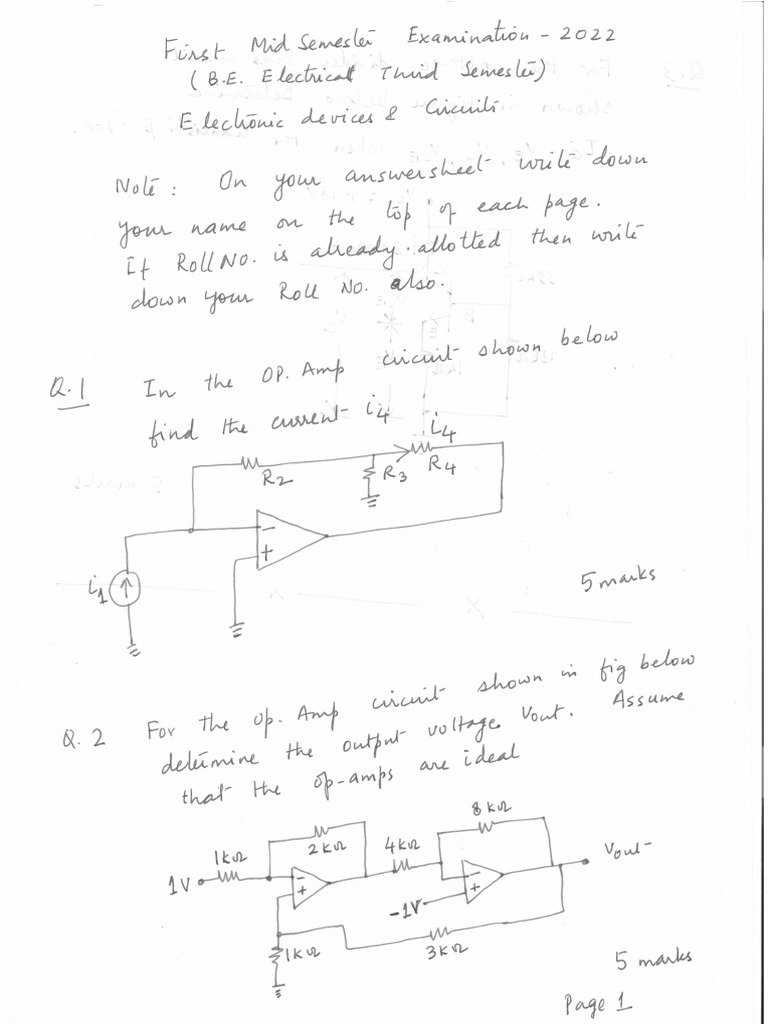 First Mid Semester Examination - 2022
(B.E. Electrical Third Semester)
Electronic devices & Circuits
Note : On your answersheet write down
your name on the top of each page.
If Roll No. is already allotted then write
down your Roll No. also.
Q.1 In the OP. Amp circuit shown below
find the current i4
i4
R2
R3
R4
-
+
i1
5 marks
Q. 2 For the Op. Amp circuit shown in fig below
determine the output voltage Vout. Assume
that the op-amps are ideal
8 kΩ
1kΩ
2 kΩ
4 kΩ
Vout
1V
-
+
-
+
-1V
1kΩ
3 kΩ
5 marks
Page 1